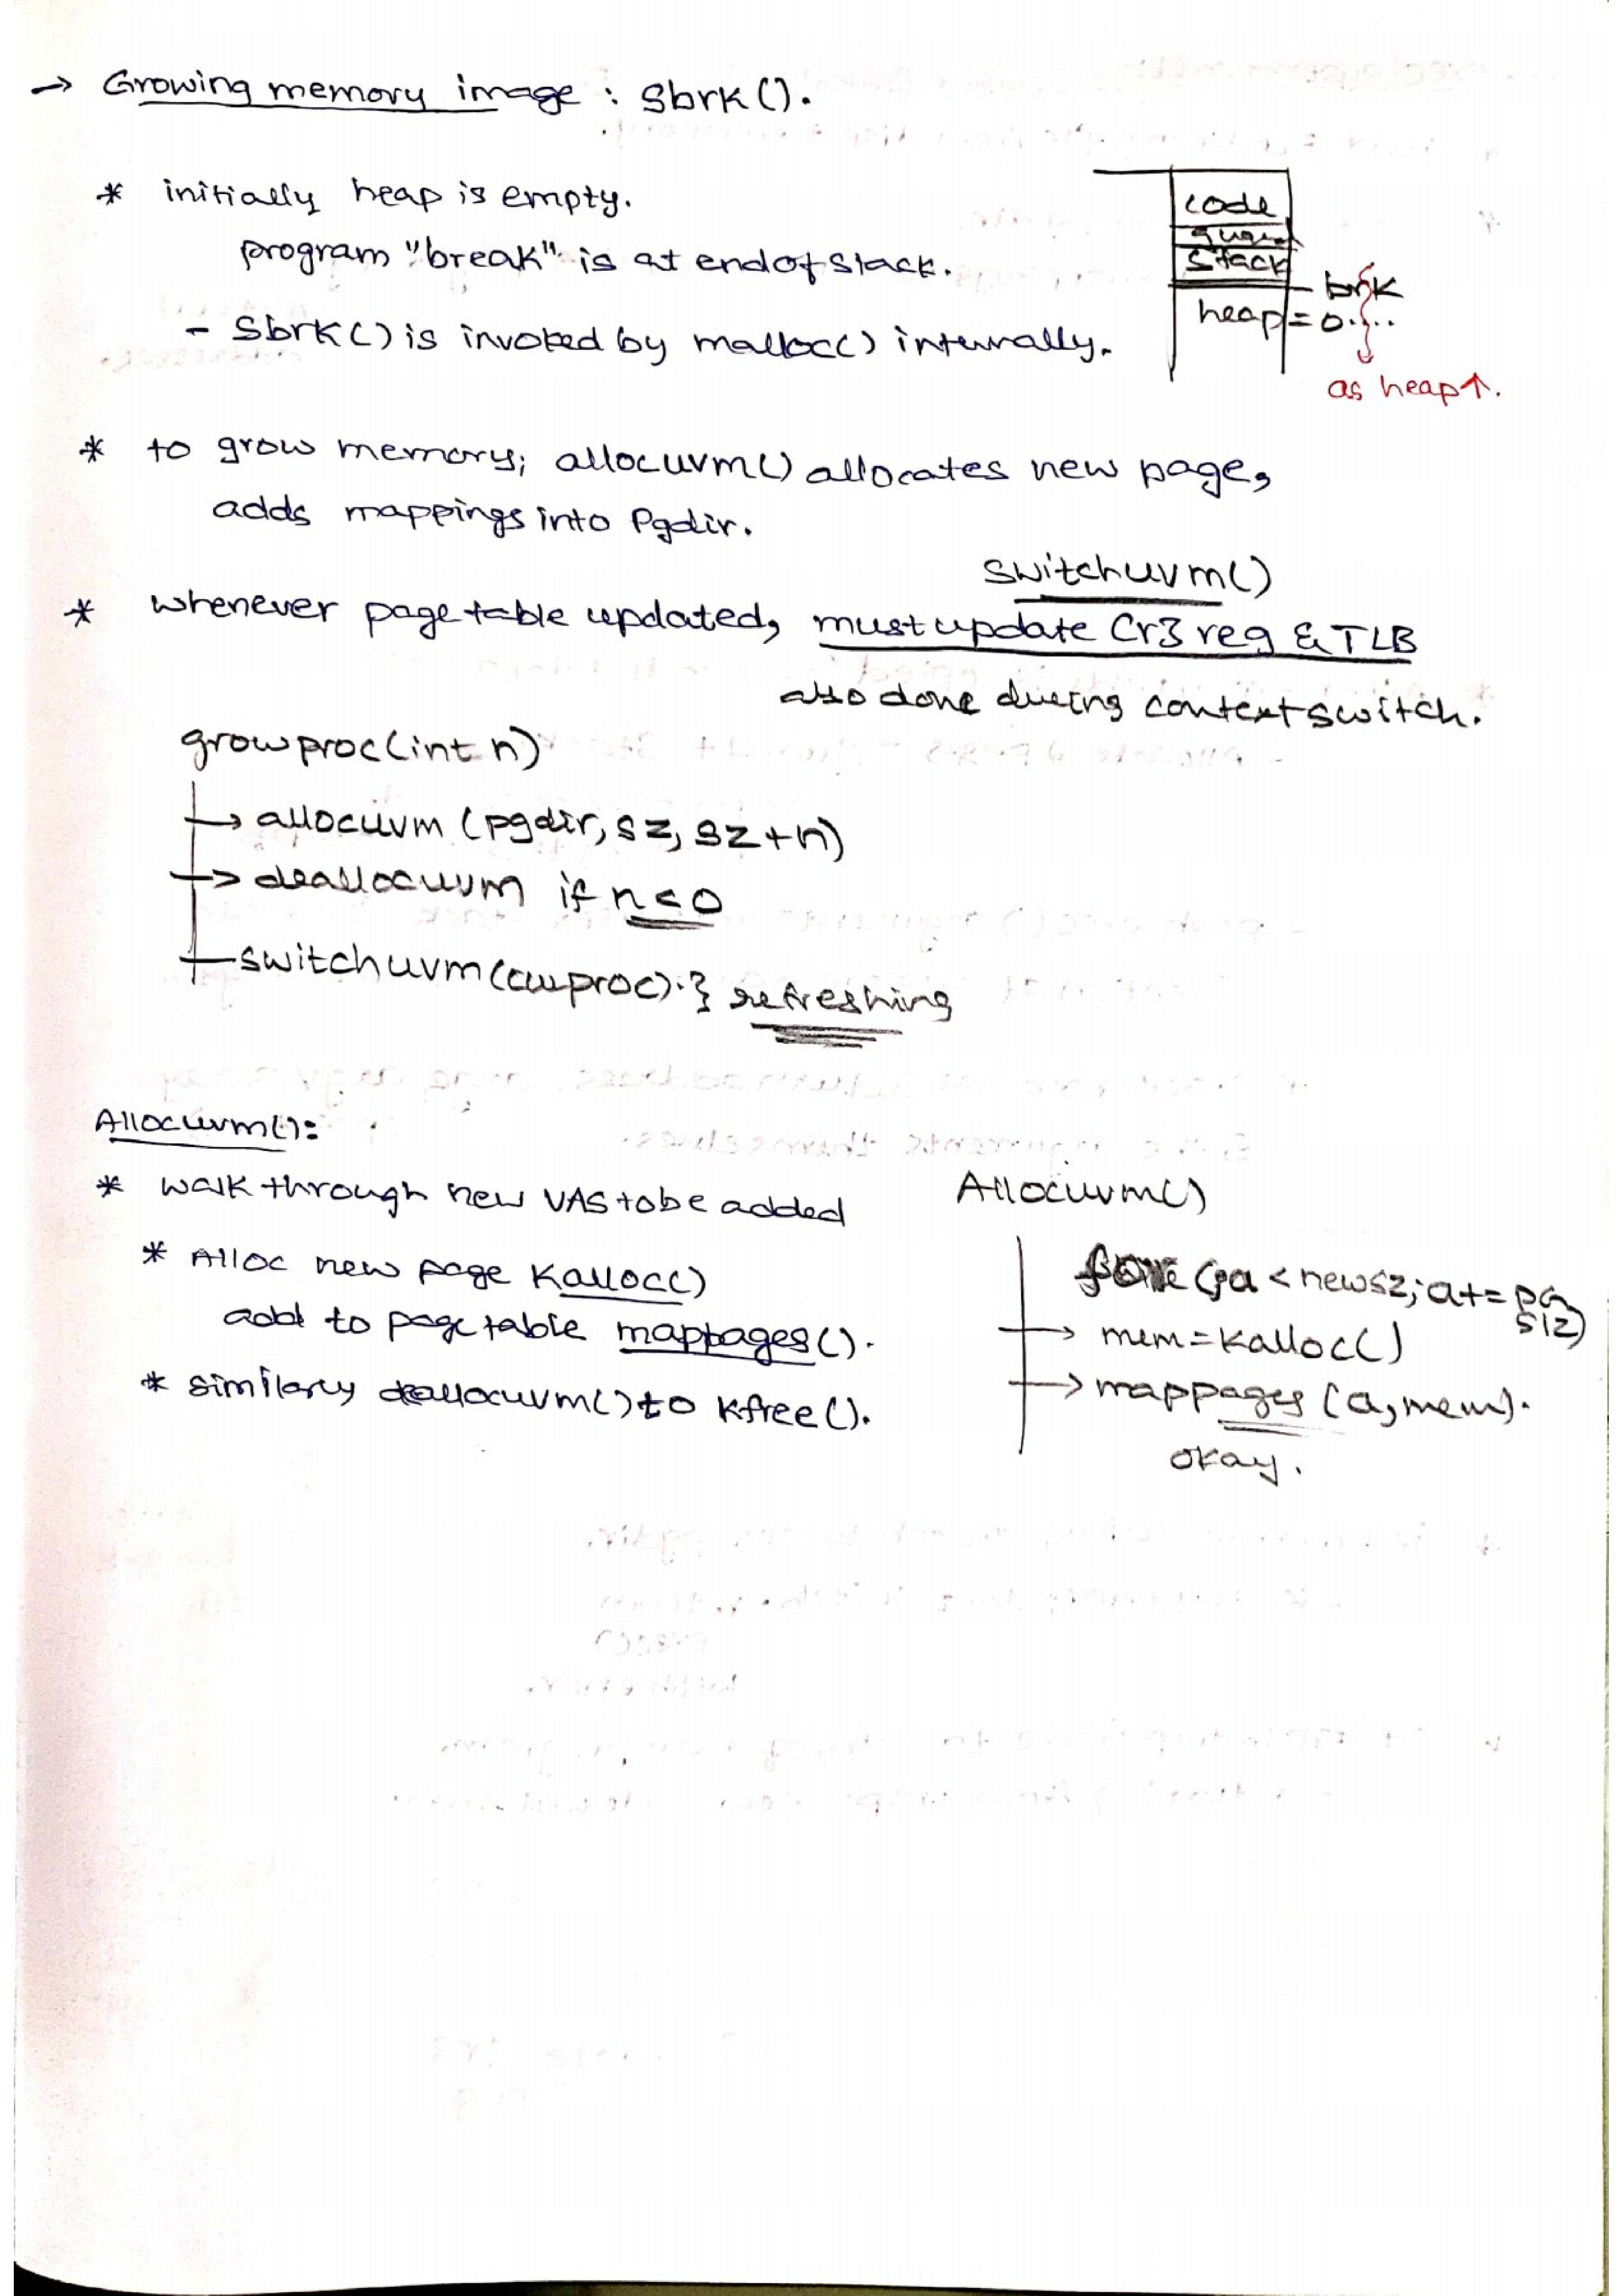 → Growing memory image : sbrk().
* initially heap is empty.
program "break" is at end of stack.
- sbrk() is invoked by malloc() internally.
code
stack
brk
heap = 0....
as heap↑.
* to grow memory; allocuvm() allocates new page,
adds mappings into Pgdir.
switchuvm()
* whenever page table updated, must update Cr3 reg & TLB
also done during context switch.
growproc(int n)
→ allocuvm (pgdir, sz, sz+n)
→ deallocuvm if n<0
switchuvm(curproc).} refreshing
Allocuvm():
* walk through new VAS to be added
* Alloc new page Kalloc()
add to page table mappages().
* similarly deallocuvm() to kfree().
Allocuvm()
(;a < newsz; a+= PG
SIZ)
→ mem = kalloc()
→ mappages (a, mem).
okay.